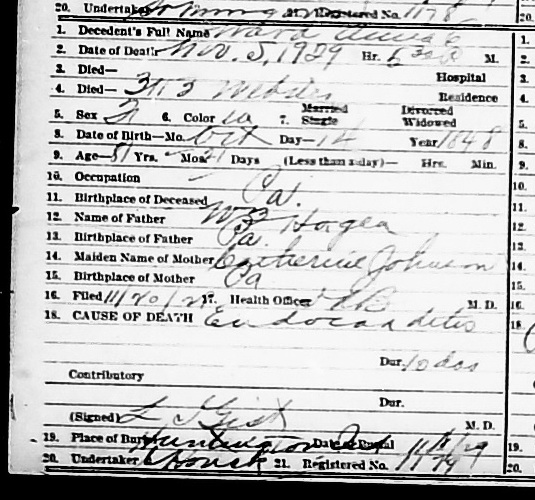 20. Undertaker 21. Registered No. 1178
1. Decedent's Full Name Ward Anna E
2. Date of Death Nov. 5, 1929 Hr. 530 M.
3. Died— Hospital
4. Died— 3113 Webster Residence
5. Sex F 6. Color W 7. Married Single Divorced Widowed
8. Date of Birth—Mo. Oct Day—14 Year 1848
9. Age—81 Yrs. Mos. 21 Days (Less than a day)— Hrs. Min.
10. Occupation
11. Birthplace of Deceased Pa.
12. Name of Father Wm Hogea
13. Birthplace of Father Pa.
14. Maiden Name of Mother Catherine Johnson
15. Birthplace of Mother Pa
16. Filed 11/20/29 17. Health Officer M. D.
18. CAUSE OF DEATH Endocarditis
Dur. 10 das
Contributory
Dur.
(Signed) L. T. Gist M. D.
19. Place of Burial Huntington Ind Date of Burial 11/8/29
20. Undertaker C Houck 21. Registered No. 1179